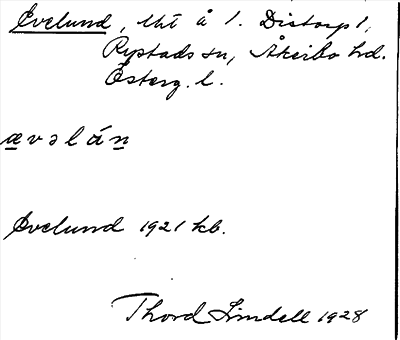 Övelund, lht å 1. Distorp 1,
Rystads sn, Åkerbo hd.
Österg. l.
ævəlán
Övelund 1921 kb.
Thord Lindell 1928